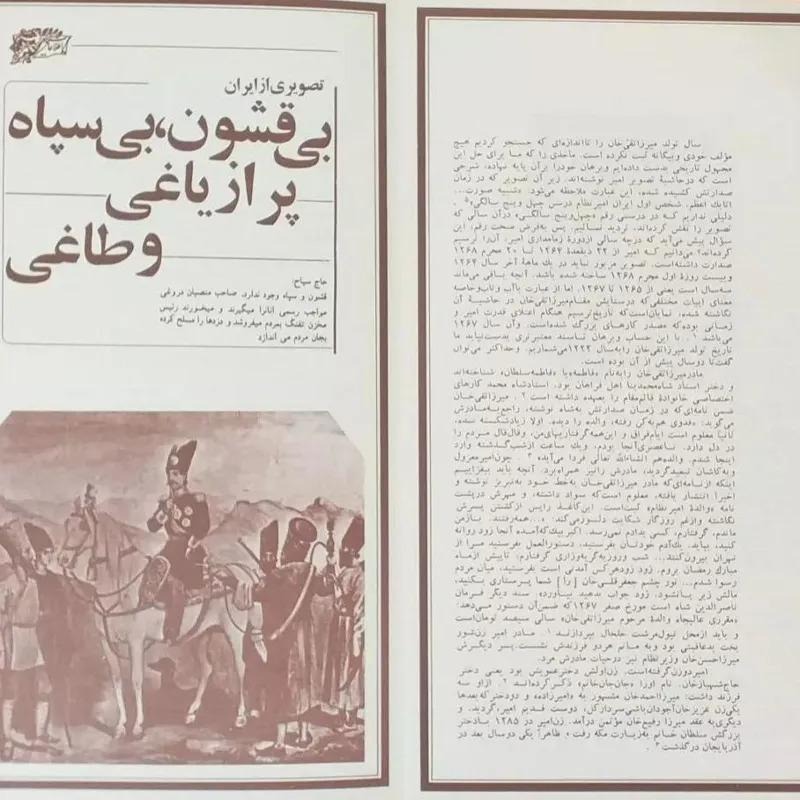 تصویری از ایران
بی قشون، بی سپاه
پر از یاغی
و طاغی
حاج سیاح:
قشون و سپاه وجود ندارد. صاحب منصبان دروغی
مواجب رسمی آنانرا میگیرند و میخورند رئیس
مخزن تفنگ بمردم میفروشد و دزدها را مسلح کرده
بجان مردم می اندازد
سال تولد میرزاتقی‌خان را تااندازه‌ای که جستجو کردیم هیچ
مؤلف خودی وبیگانه ثبت نکرده است. ماخذی را که ما برای حل این
مجهول تاریخی بدست داده‌ایم وبرهان خودرا برآن پایه نهاده، شرحی
است که درحاشیهٔ تصویر امیر نوشته‌اند. زیر آن تصویر که در زمان
صدارتش کشیده شده، این عبارت ملاحظه می‌شود: «شبیه صورت...
اتابك اعظم، شخص اول ایران امیرنظام درسن چهل وپنج سالگی» .
دلیلی نداریم که در درستی رقم «چهل‌وپنج سالگی» درآن سالی که
تصویر را نقش کرده‌اند، تردید نمائیم. پس به‌فرض صحت رقم، این
سؤال پیش می‌آید که درچه سالی ازدورهٔ زمامداری امیر، آن‌را ترسیم
کرده‌اند؟ می‌دانیم که امیر از ۲۲ ذیقعدهٔ ۱۲۶۴ تا ۲۰ محرم ۱۲۶۸
صدارت داشته‌است. تصویر مزبور نباید در یك ماههٔ آخر سال ۱۲۶۴
وبیست روزهٔ اول محرم ۱۲۶۸ ساخته شده باشد. آنچه باقی می‌ماند
سه‌سال است یعنی از ۱۲۶۵ تا ۱۲۶۷. اما از عبارت باآب وتاب‌وخاصه
معنای ابیات مختلفی‌که درستایش مقام‌میرزاتقی‌خان در حاشیهٔ آن
نگاشته شده، نمایان‌است‌که تاریخ‌ترسیم هنگام اعتلای قدرت امیر و
زمانی بوده‌که مصدر کارهای بزرگ شده‌است. وآن سال ۱۲۶۷
می‌باشد ۱ . با این حساب وبرهان تاسند معتبرتری بدست‌نیاید ما
تاریخ تولد میرزاتقی‌خان رابه‌سال ۱۲۲۲می‌شماریم. وحداکثر می‌توان
گفت‌تا دوسال پیش از آن بوده است.
مادرمیرزاتقی‌خان رابه‌نام «فاطمه» یا «فاطمه‌سلطان» شناخته‌اند
و دختر استاد شاه‌محمدبنا اهل فراهان بود. استادشاه محمد کارهای
اختصاصی خانوادهٔ قائم‌مقام را بعهده داشته است ۲ . میرزاتقی‌خان
ضمن نامه‌ای‌که در زمان صدارتش به‌شاه نوشته، راجع‌به‌مادرش
می‌گوید: «فدوی هم‌به‌کن رفته، والده را دیده. اولا زیادشکسته شده،
ثانیا معلوم است ایام‌فراق و این‌همه‌گرفتاریهای‌من، وقال‌قال مردم را
در دل دارد. تاعصری‌آنجا بودم، ویك ساعت ازشب‌گذشته وارد
اینجا شدم. والده‌هم انشاءالله تعالی فردا می‌آید» ۳ . چون‌امیرمعزول
وبه‌کاشان تبعیدگردید، مادرش رانیز همراه‌برد. آنچه باید بیفزاییم
اینکه ازنامه‌ای‌که مادر میرزاتقی‌خان به‌خط خود به‌تبریز نوشته و
اخیرا انتشار یافته، معلوم است‌که سواد داشته، و مهرش درپشت
نامه «والدهٔ امیر نظام» ثبت‌است. این‌کاغذ راپس ازکشتن پسرش
نگاشته وازغم روزگار شکایت دلسوزمی‌کند: «...همه‌رفتند. بنازمن
ماندم، گرفتارم، کسی بدادم نمی‌رسد. اکبر بیك‌که‌آمده آنجا زود روانه
کنید، بیاید. یك‌آدم خودتان بفرستید، دستورالعمل بفرستید مرا از
تهران بیرون‌کنند... شب وروزبه‌گریه‌وزاری گرفتارم، تاپیش ازماه
مبارك رمضان بروم. زود زودهرکس آمدنی است بفرستید، میان مردم
رسوا شدم... نور چشم جعفرقلی‌خان [را] شما پرستاری بکنید،
مالش زیر پانشود. زود جواب بدهید نیاورده». سند دیگر فرمان
ناصرالدین شاه است مورخ صفر ۱۲۶۷که ضمن‌آن دستور می‌دهد:
«مقرری عالیجاه والدهٔ مرحوم میرزاتقی‌خان» سالی سیصد تومان‌است
و باید ازمحل تیول‌مرشت خلخال بپردازند ۱ . مادر امیر زن‌شور
بخت بدعاقبتی بود وبه ماتم هردو فرزندش نشست.پسر دیگرش
میرزاحسن‌خان وزیرنظام نیز درحیات مادرش مرد.
امیردوزن‌گرفته‌است. زن‌اولش دخترعمویش بود یعنی دختر
حاج‌شهبازخان. نام اورا «جان‌جان‌خانم» ذکرکرده‌اند ۲ . ازاو سه
فرزند داشت: میرزااحمدخان مشهور به «امیرزاده» و دودخترکه‌بعدها
یکی‌زن عزیزخان‌آجودان‌باشی‌سردارکل، دوست قدیم امیر،گردید. و
دیگری‌به عقد میرزا رفیع‌خان مؤتمن درآمد. زن‌امیر در ۱۲۸۵ بادختر
بزرگش سلطان خانم به‌زیارت مکه رفت، ظاهراً یکی دوسال بعد در
آذربایجان درگذشت ۳ .